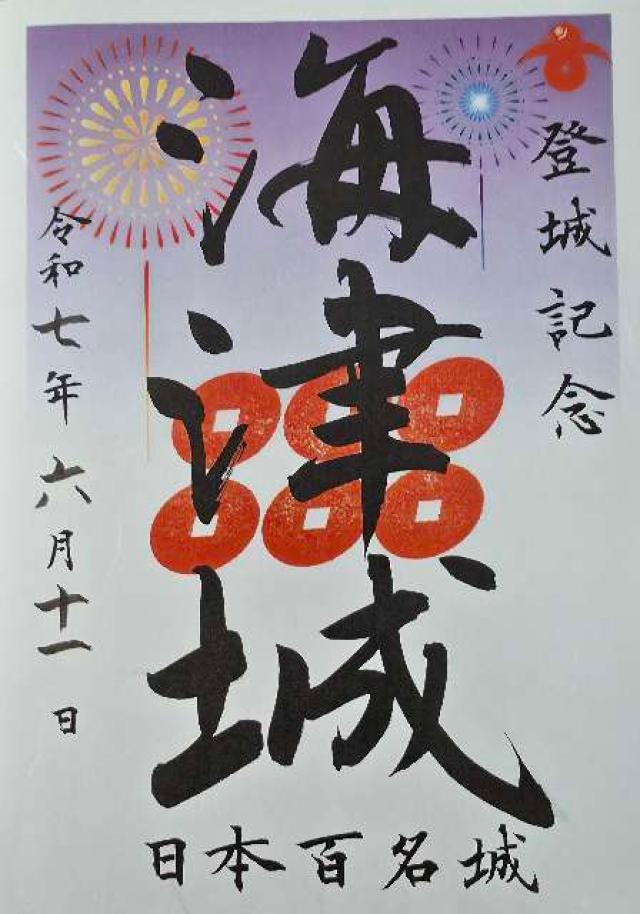 登城記念
海津城
令和七年六月十一日
日本百名城